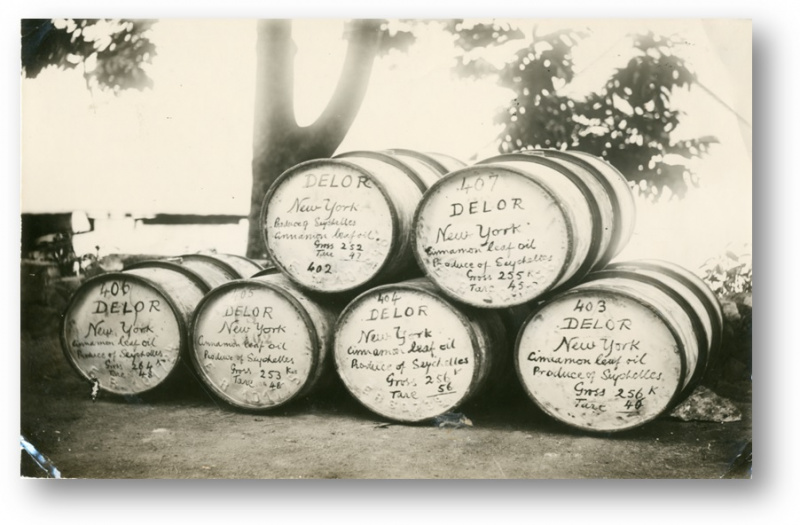 DELOR
New York
Produce of Seychelles
Cinnamon leaf oil
Gross 252
Tare 47
402
407
DELOR
New York
Cinnamon leaf oil
Produce of Seychelles
Gross 255 K
Tare 45
406
DELOR
New York
Cinnamon leaf oil
Produce of Seychelles
Gross 264.5
Tare 48
405
DELOR
New York
Cinnamon leaf oil
Produce of Seychelles
Gross 253 Ks
Tare 48
404
DELOR
New York
Cinnamon leaf oil
Produce of Seychelles
Gross 256 K
Tare 56
403
DELOR
New York
Cinnamon leaf oil
Produce of Seychelles
Gross 256 K
Tare 40